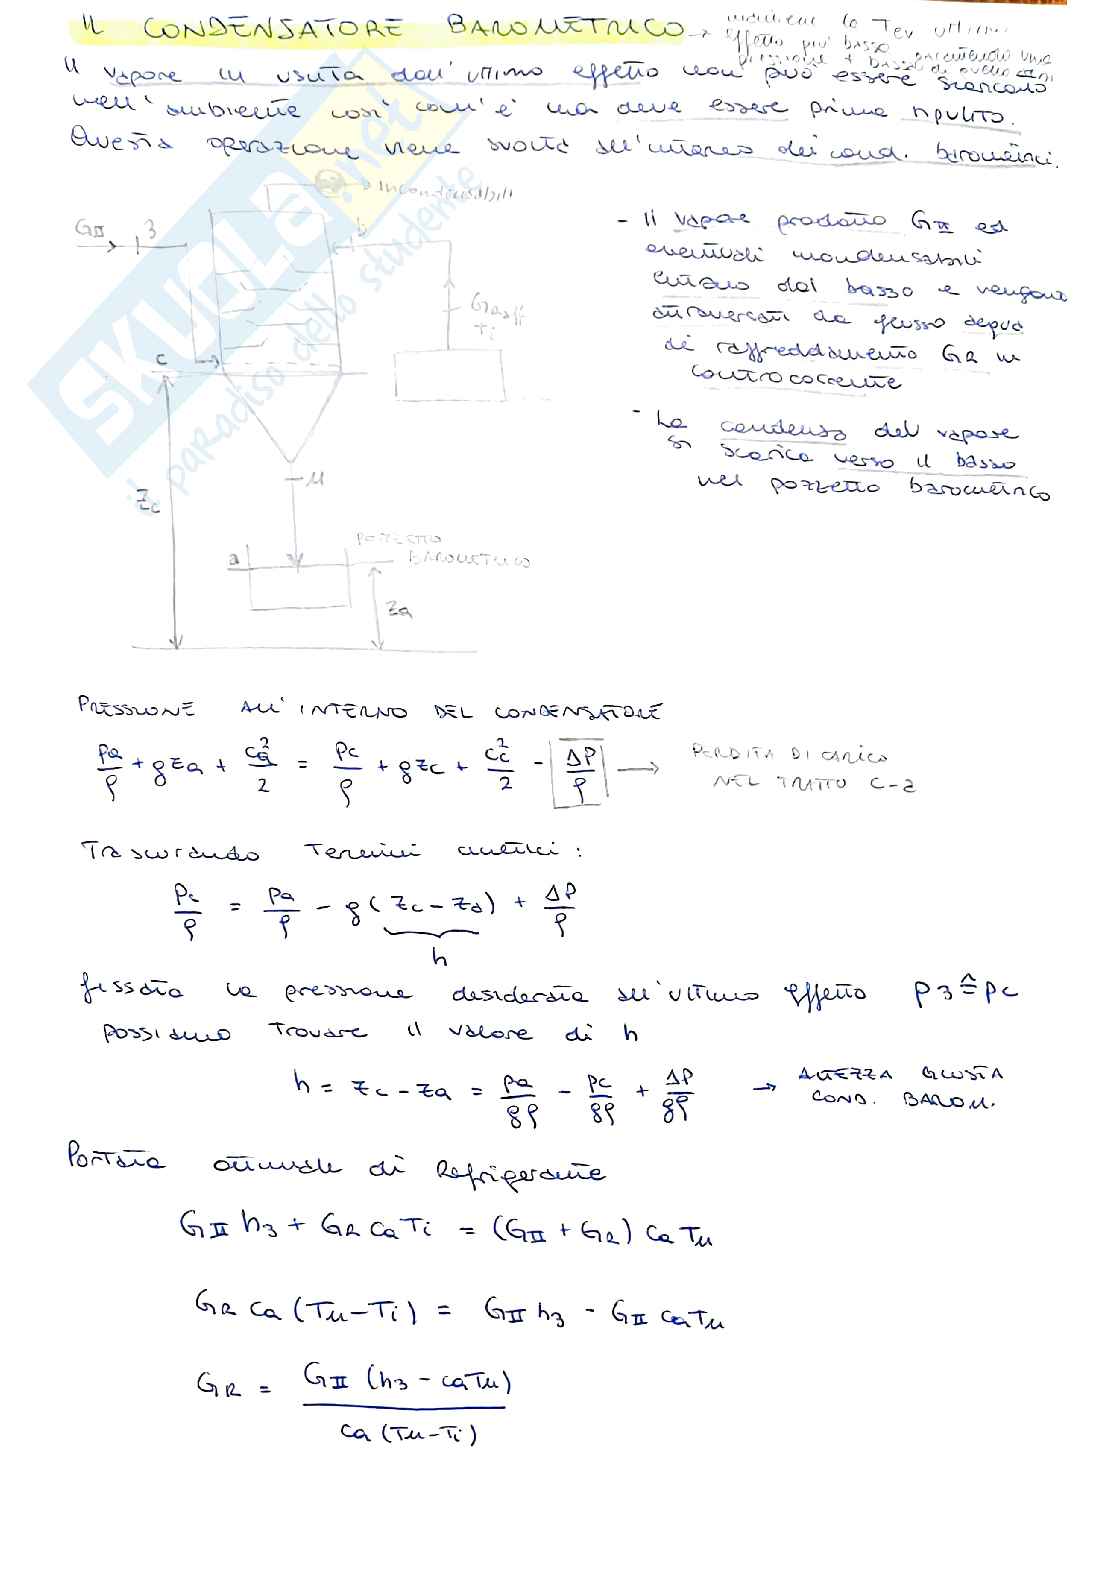 IL CONDENSATORE BAROMETRICO → mantiene la Tev ultimo
effetto più basso garantendo una
pressione + bassa di quella
Il vapore in uscita dall'ultimo effetto non può essere scaricato
nell'ambiente così com'è ma deve essere prima ripulito.
Questa operazione viene svolta all'interno dei cond. barometrici.
→ Incondensabili
GII 3
b
GR
Ti
c
- Il vapore prodotto GII ed
eventuali incondensabili
entrano dal basso e vengono
attraversati da flusso acqua
di raffreddamento GR in
controcorrente
- La condensa del vapore
si scarica verso il basso
nel pozzetto barometrico
Zc
u
POZZETTO
BAROMETRICO
a
Za
SKUOLA.net
il paradiso dello studente
PRESSIONE ALL'INTERNO DEL CONDENSATORE
pa/ρ + gza + ca²/2 = pc/ρ + gzc + cc²/2 - ΔP/ρ → PERDITA DI CARICO
NEL TRATTO C-a
Trascurando Termini cinetici:
pc/ρ = pa/ρ - g(zc-za) + ΔP/ρ
h
fissata la pressione desiderata all'ultimo effetto p3 ≙ pc
possiamo trovare il valore di h
h = zc - za = pa/gρ - pc/gρ + ΔP/gρ → ALTEZZA GIUSTA
COND. BAROM.
Portata ottimale di Refrigerante
GII h3 + GR ca Ti = (GII + GR) ca Tu
GR ca (Tu-Ti) = GII h3 - GII ca Tu
GR = GII (h3 - ca Tu) / ca (Tu-Ti)